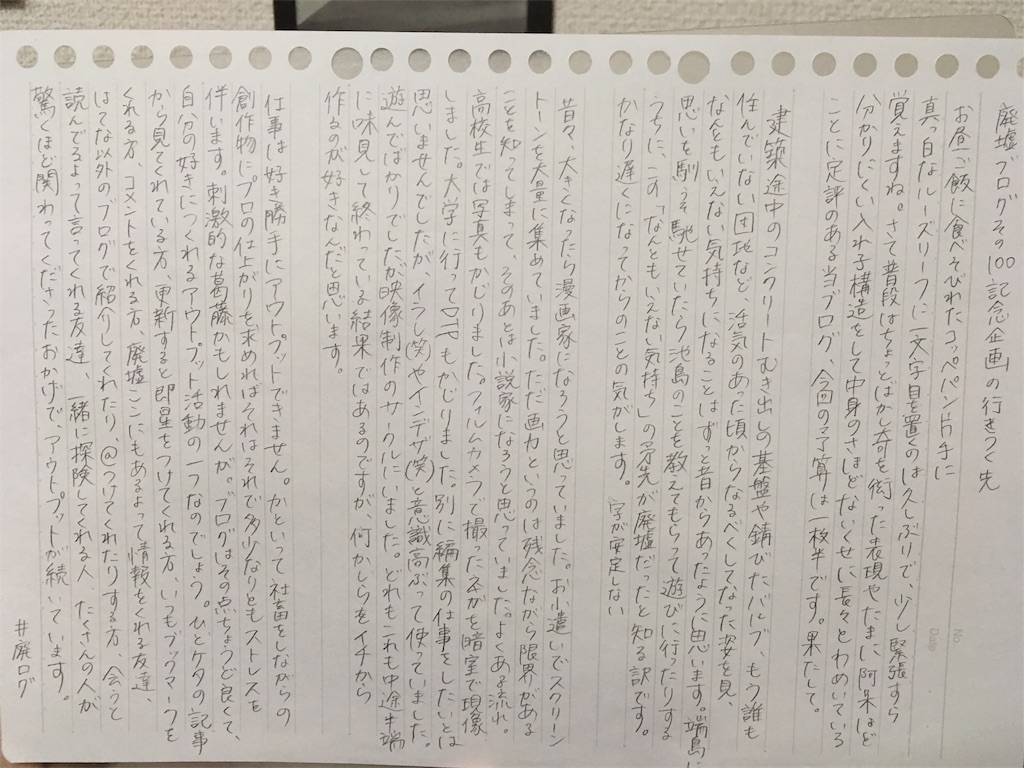 廃墟ブログその100記念企画の行きつく先
お昼ご飯に食べそびれたコッペパン片手に
真っ白なルーズリーフに一文字目を置くのは久しぶりで、少し緊張すら
覚えますね。さて普段はちょっとばかし奇を衒った表現やたまに阿呆ほど
分かりにくい入れ子構造をして中身のさほどないくせに長々とわめいている
ことに定評のある当ブログ、今回の予算は一枚半です。果たして。
建築途中のコンクリートむき出しの基盤や錆びたバルブ、もう誰も
住んでいない団地など、活気のあった頃からなるべくしてなった姿を見、
なんともいえない気持ちになることはずっと昔からあったように思います。端島に
思いを馳せ馳せていたら池島のことも教えてもらって遊びに行ったりする
うちに、この「なんともいえない気持ち」の矛先が廃墟だったと知る訳です。
かなり遅くになってからのことの気がします。 字が安定しない
昔々、大きくなったら漫画家になろうと思っていました。お小遣いでスクリーン
トーンを大量に集めていました。ただ画力というのは残念ながら限界がある
ことを知ってしまって、そのあとは小説家になろうと思っていました。よくある流れ。
高校生では写真もかじりました。フィルムカメラで撮ったネガを暗室で現像
しました。大学に行ってDTPもかじりました。別に編集の仕事をしたいとは
思いませんでしたが、イラレ(笑)やインデザ(笑)と意識高ぶって使っていました。
遊んでばかりでしたが映像制作のサークルにいました。どれもこれも中途半端
に味見して終わっている結果ではあるのですが、何かしらをイチから
作るのが好きなんだと思います。
仕事は好き勝手にアウトプットできません。かといって社畜をしながらの
創作物にプロの仕上がりを求めればそれはそれで多少なりともストレスを
伴います。刺激的な葛藤かもしれませんが。ブログはその点ちょうど良くて、
自分の好きにつくれるアウトプット活動の一つなのでしょう。ひとケタの記事
から見てくれている方、更新すると即星をつけてくれる方、いつもブックマークを
くれる方、コメントをくれる方、廃墟ここにもあるよって情報をくれる友達、
はてな以外のブログで紹介してくれたり、@つけてくれたりする方、会うと
読んでるよって言ってくれる友達、一緒に探険してくれる人、たくさんの人が
驚くほど関わってくださったおかげで、アウトプットが続いています。
#廃ログ
No.
Date